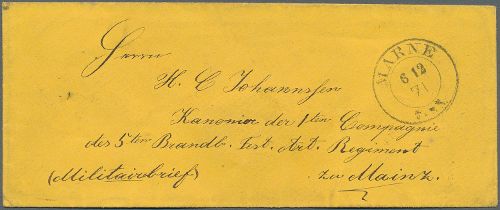 Herrn
H. C Johannssen
Kanonier der 1ten Compagnie
des 5ten Brandb. Fest. Art. Regiment
(Militairbrief) zu Mainz.
MARNE
6 12
71